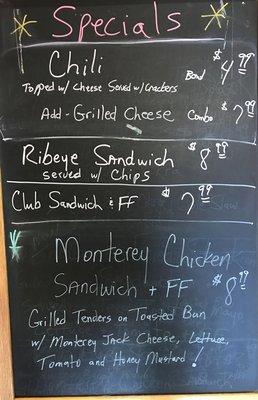 Specials
Chili Bowl $4.99
Topped w/ Cheese Served w/ Crackers
Add-Grilled Cheese Combo $7.99
Ribeye Sandwich $8.99
served w/ Chips
Club Sandwich & FF $7.99
Monterey Chicken
Sandwich + FF $8.99
Grilled Tenders on Toasted Bun
w/ Monterey Jack Cheese, Lettuce,
Tomato and Honey Mustard!